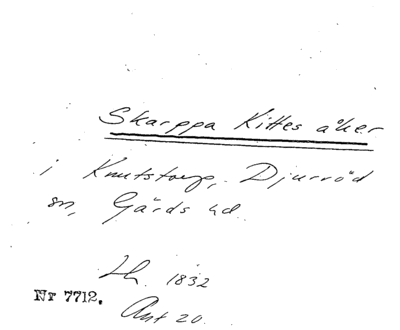 Skarppa Kittes åker
i Knutstorp, Djurröd
sn, Gärds hd.
Lh. 1832
Nr 7712.
Akt 20.